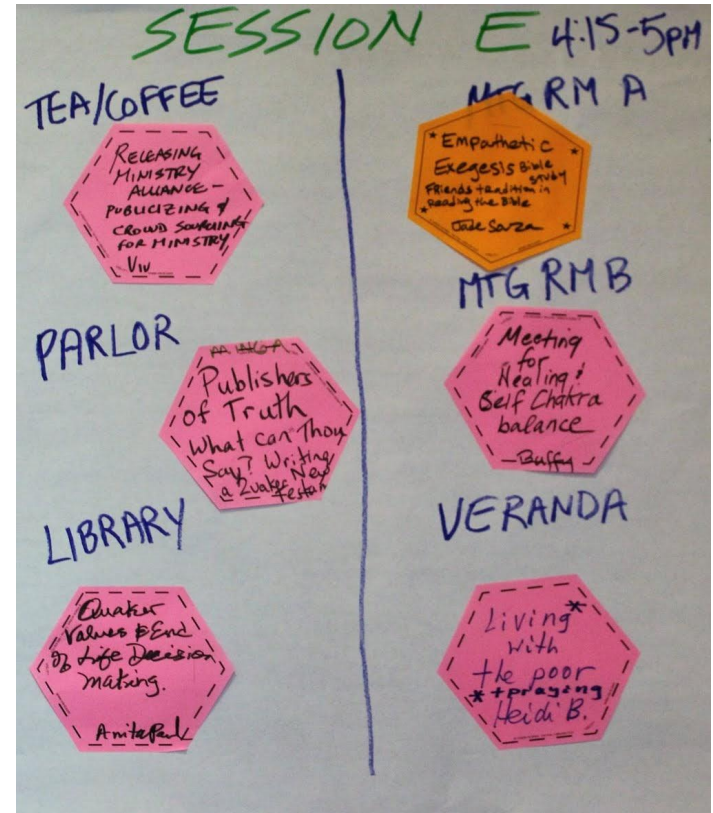 SESSION E 4:15-5PM
TEA/COFFEE
RELEASING
MINISTRY
ALLIANCE -
PUBLICIZING &
CROWD SOURCING
FOR MINISTRY
Viv
PARLOR
Publishers
of Truth
What can Thou
Say? Writing
a Quaker New
Testam
LIBRARY
Quaker
Values & End
of Life Decision
making.
Anita Paul
MTG RM A
Empathetic
Exegesis Bible
study
Friends tradition in
reading the Bible
Jade Souza
MTG RM B
Meeting
for
Healing &
Self Chakra
balance
-Buffy-
VERANDA
Living*
with
the poor
* + praying
Heidi B.